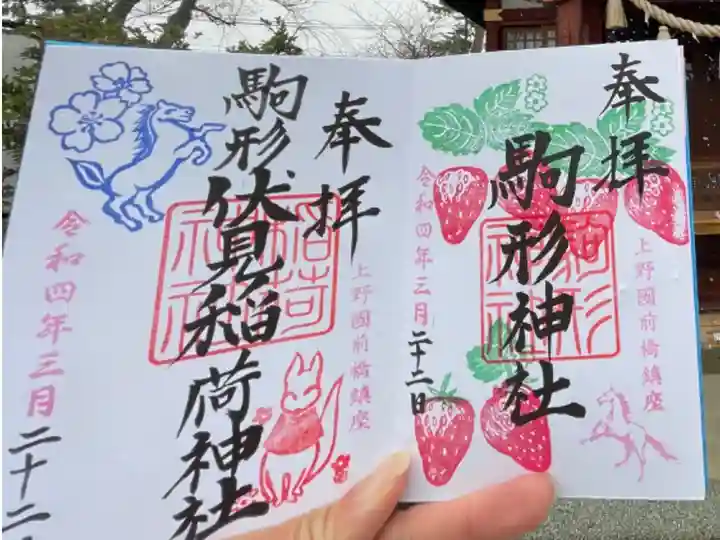 奉拝
上野國前橋鎮座
駒形神社
令和四年三月二十二日
駒形
神社
奉拝
上野國前橋鎮座
駒形伏見稲荷神社
令和四年三月二十二
稲荷
神社